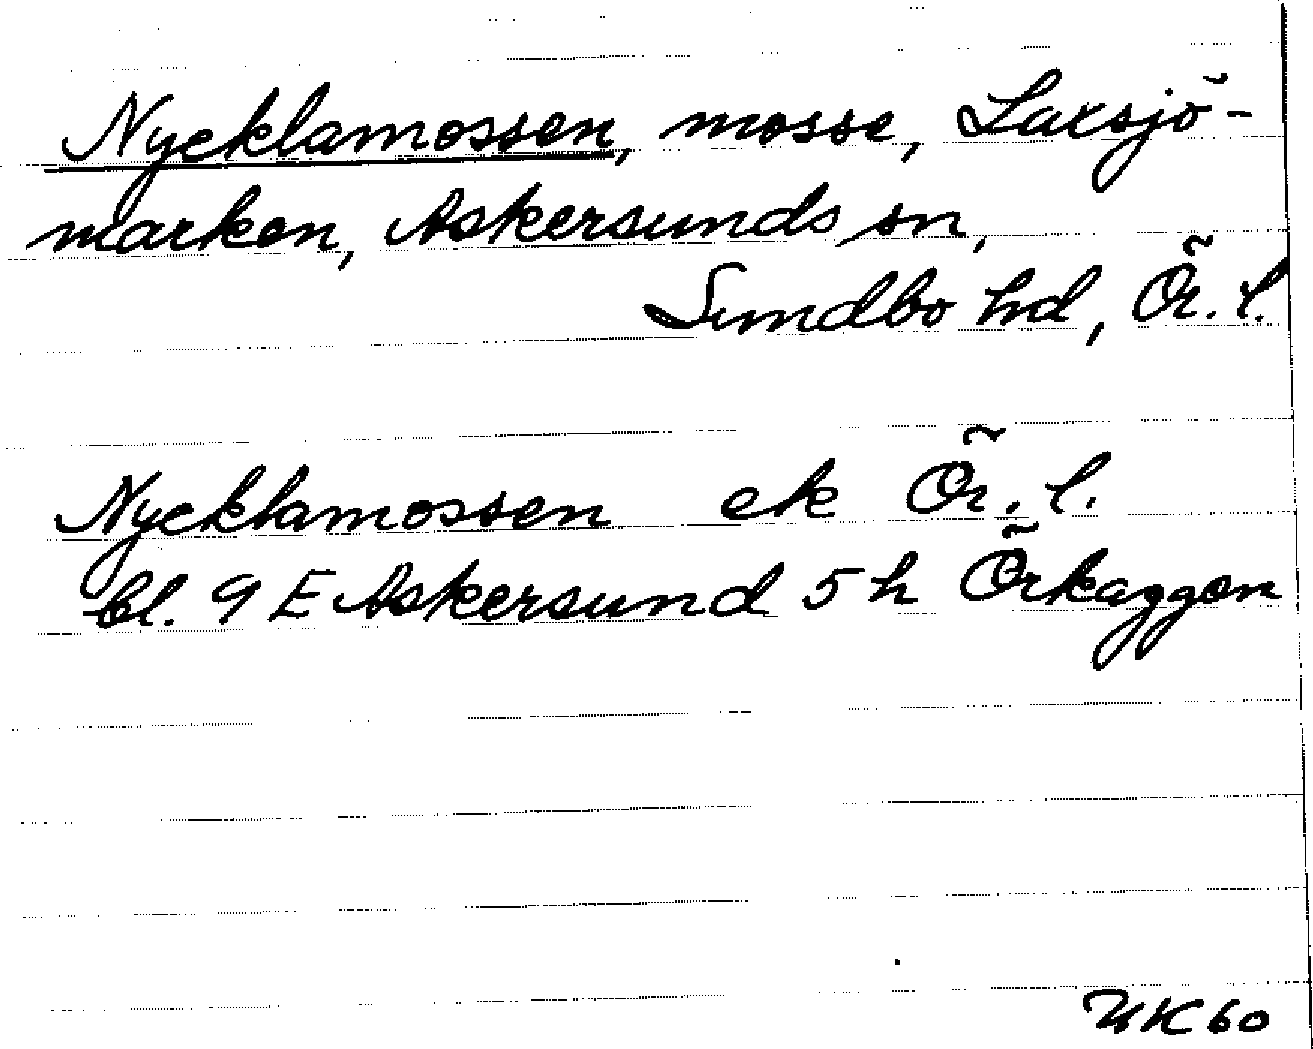 Nycklamossen, mosse, Laxsjö-
marken, Askersunds sn,
Sundbo hd, Ör. l.
Nycklamossen ek Ör. l.
bl. 9 E Askersund 5 h Örkaggen
UK 60